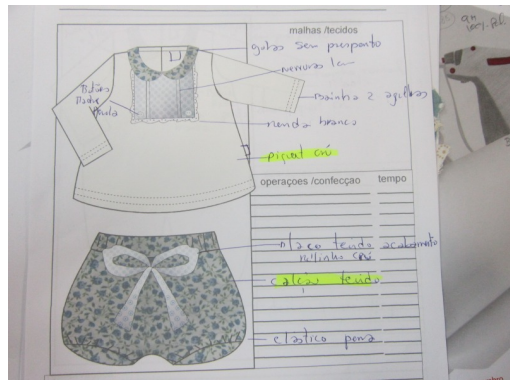 malhas /tecidos
golas sem pesponto
nervuras 1cm
Botões
Madre
Pérola
Bainha 2 agulhas
renda branca
piquet crú
operaçoes /confecção tempo
laço tecido acabamento
rolinho crú
calção tecido
elastico perna